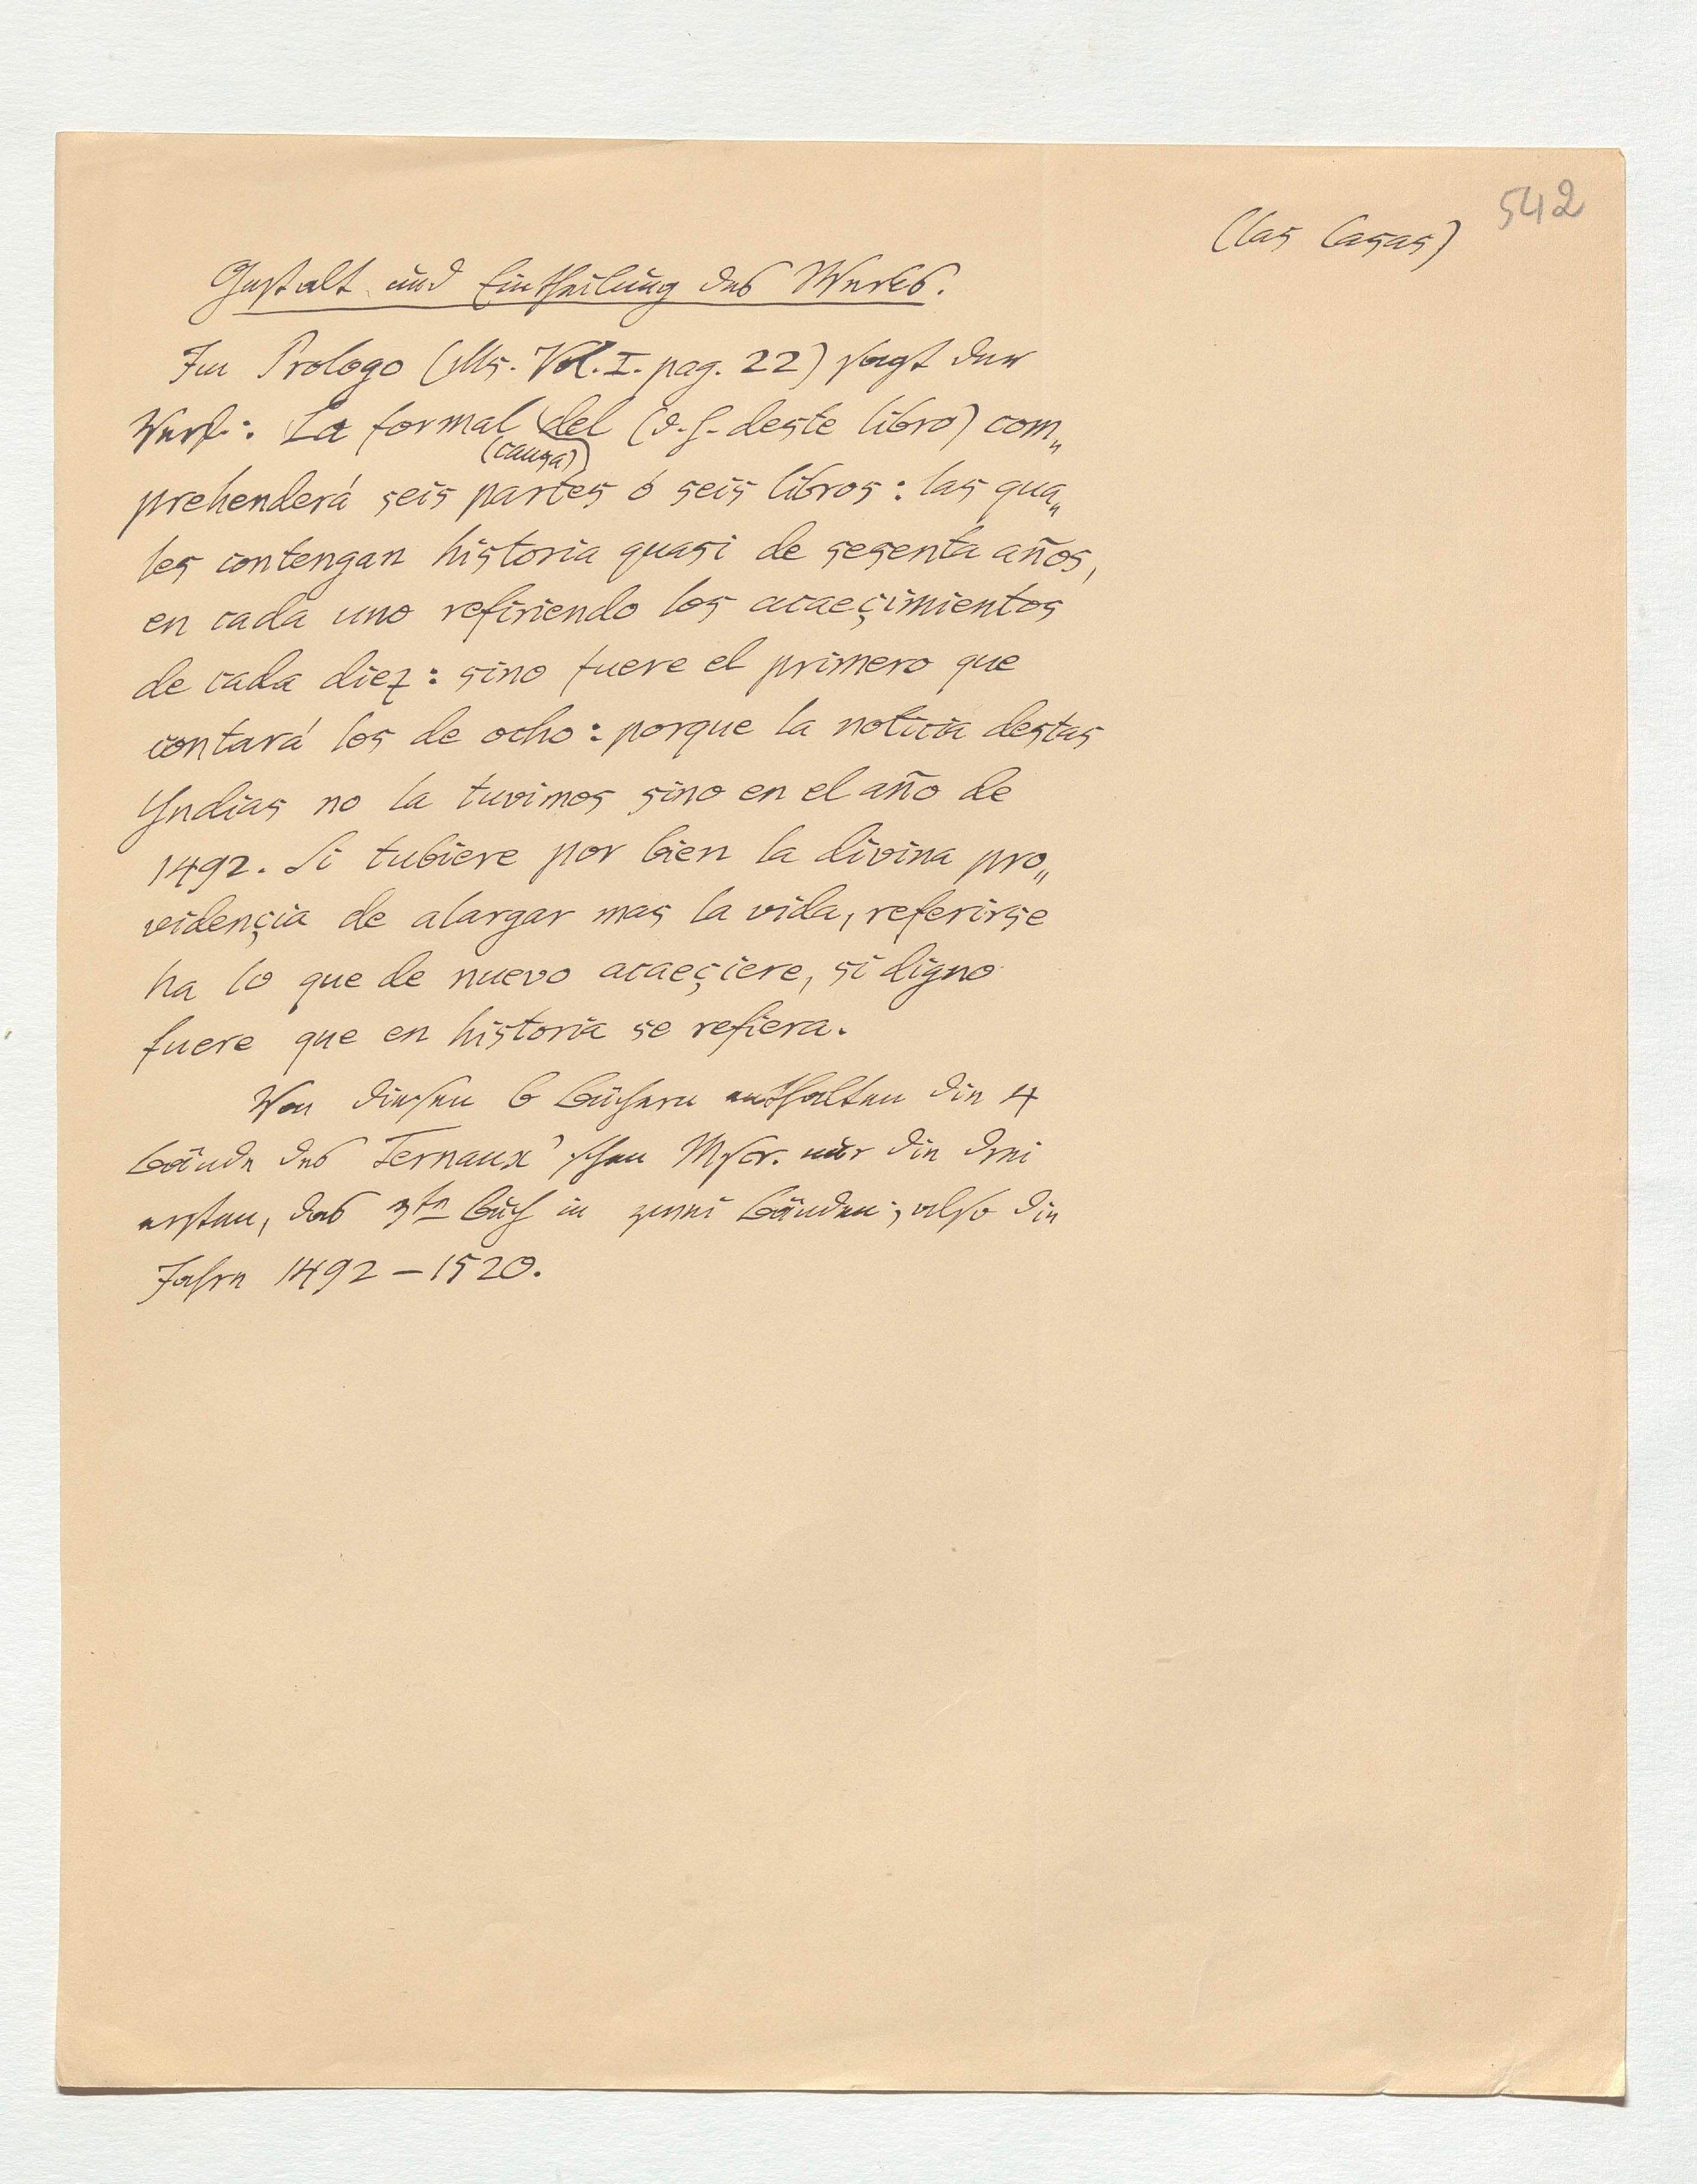 542
(las Casas)
Gestalt und Eintheilung des Werkes.
Im Prologo (Ms. Vol. I. pag. 22) sagt der
Verf.: La formal del (d. h. deste libro) com„
(causa)
prehenderá seis partes ó seis libros: las qua„
les contengan historia quasi de sesenta años,
en cada uno refiriendo los acaeçimientos
de cada diez: sino fuere el primero que
contará los de ocho: porque la noticia destas
Yndias no la tuvimos sino en el año de
1492. Si tubiere por bien la divina pro„
vidençia de alargar mas la vida, referirse
ha lo que de nuevo acaeçiere, si digno
fuere que en historia se refiera.
Von diesen 6 Büchern enthalten die 4
Bände des Ternaux'schen Mscr. nur die drei
ersten, das 3te Buch in zwei Bänden; also die
Jahre 1492 – 1520.